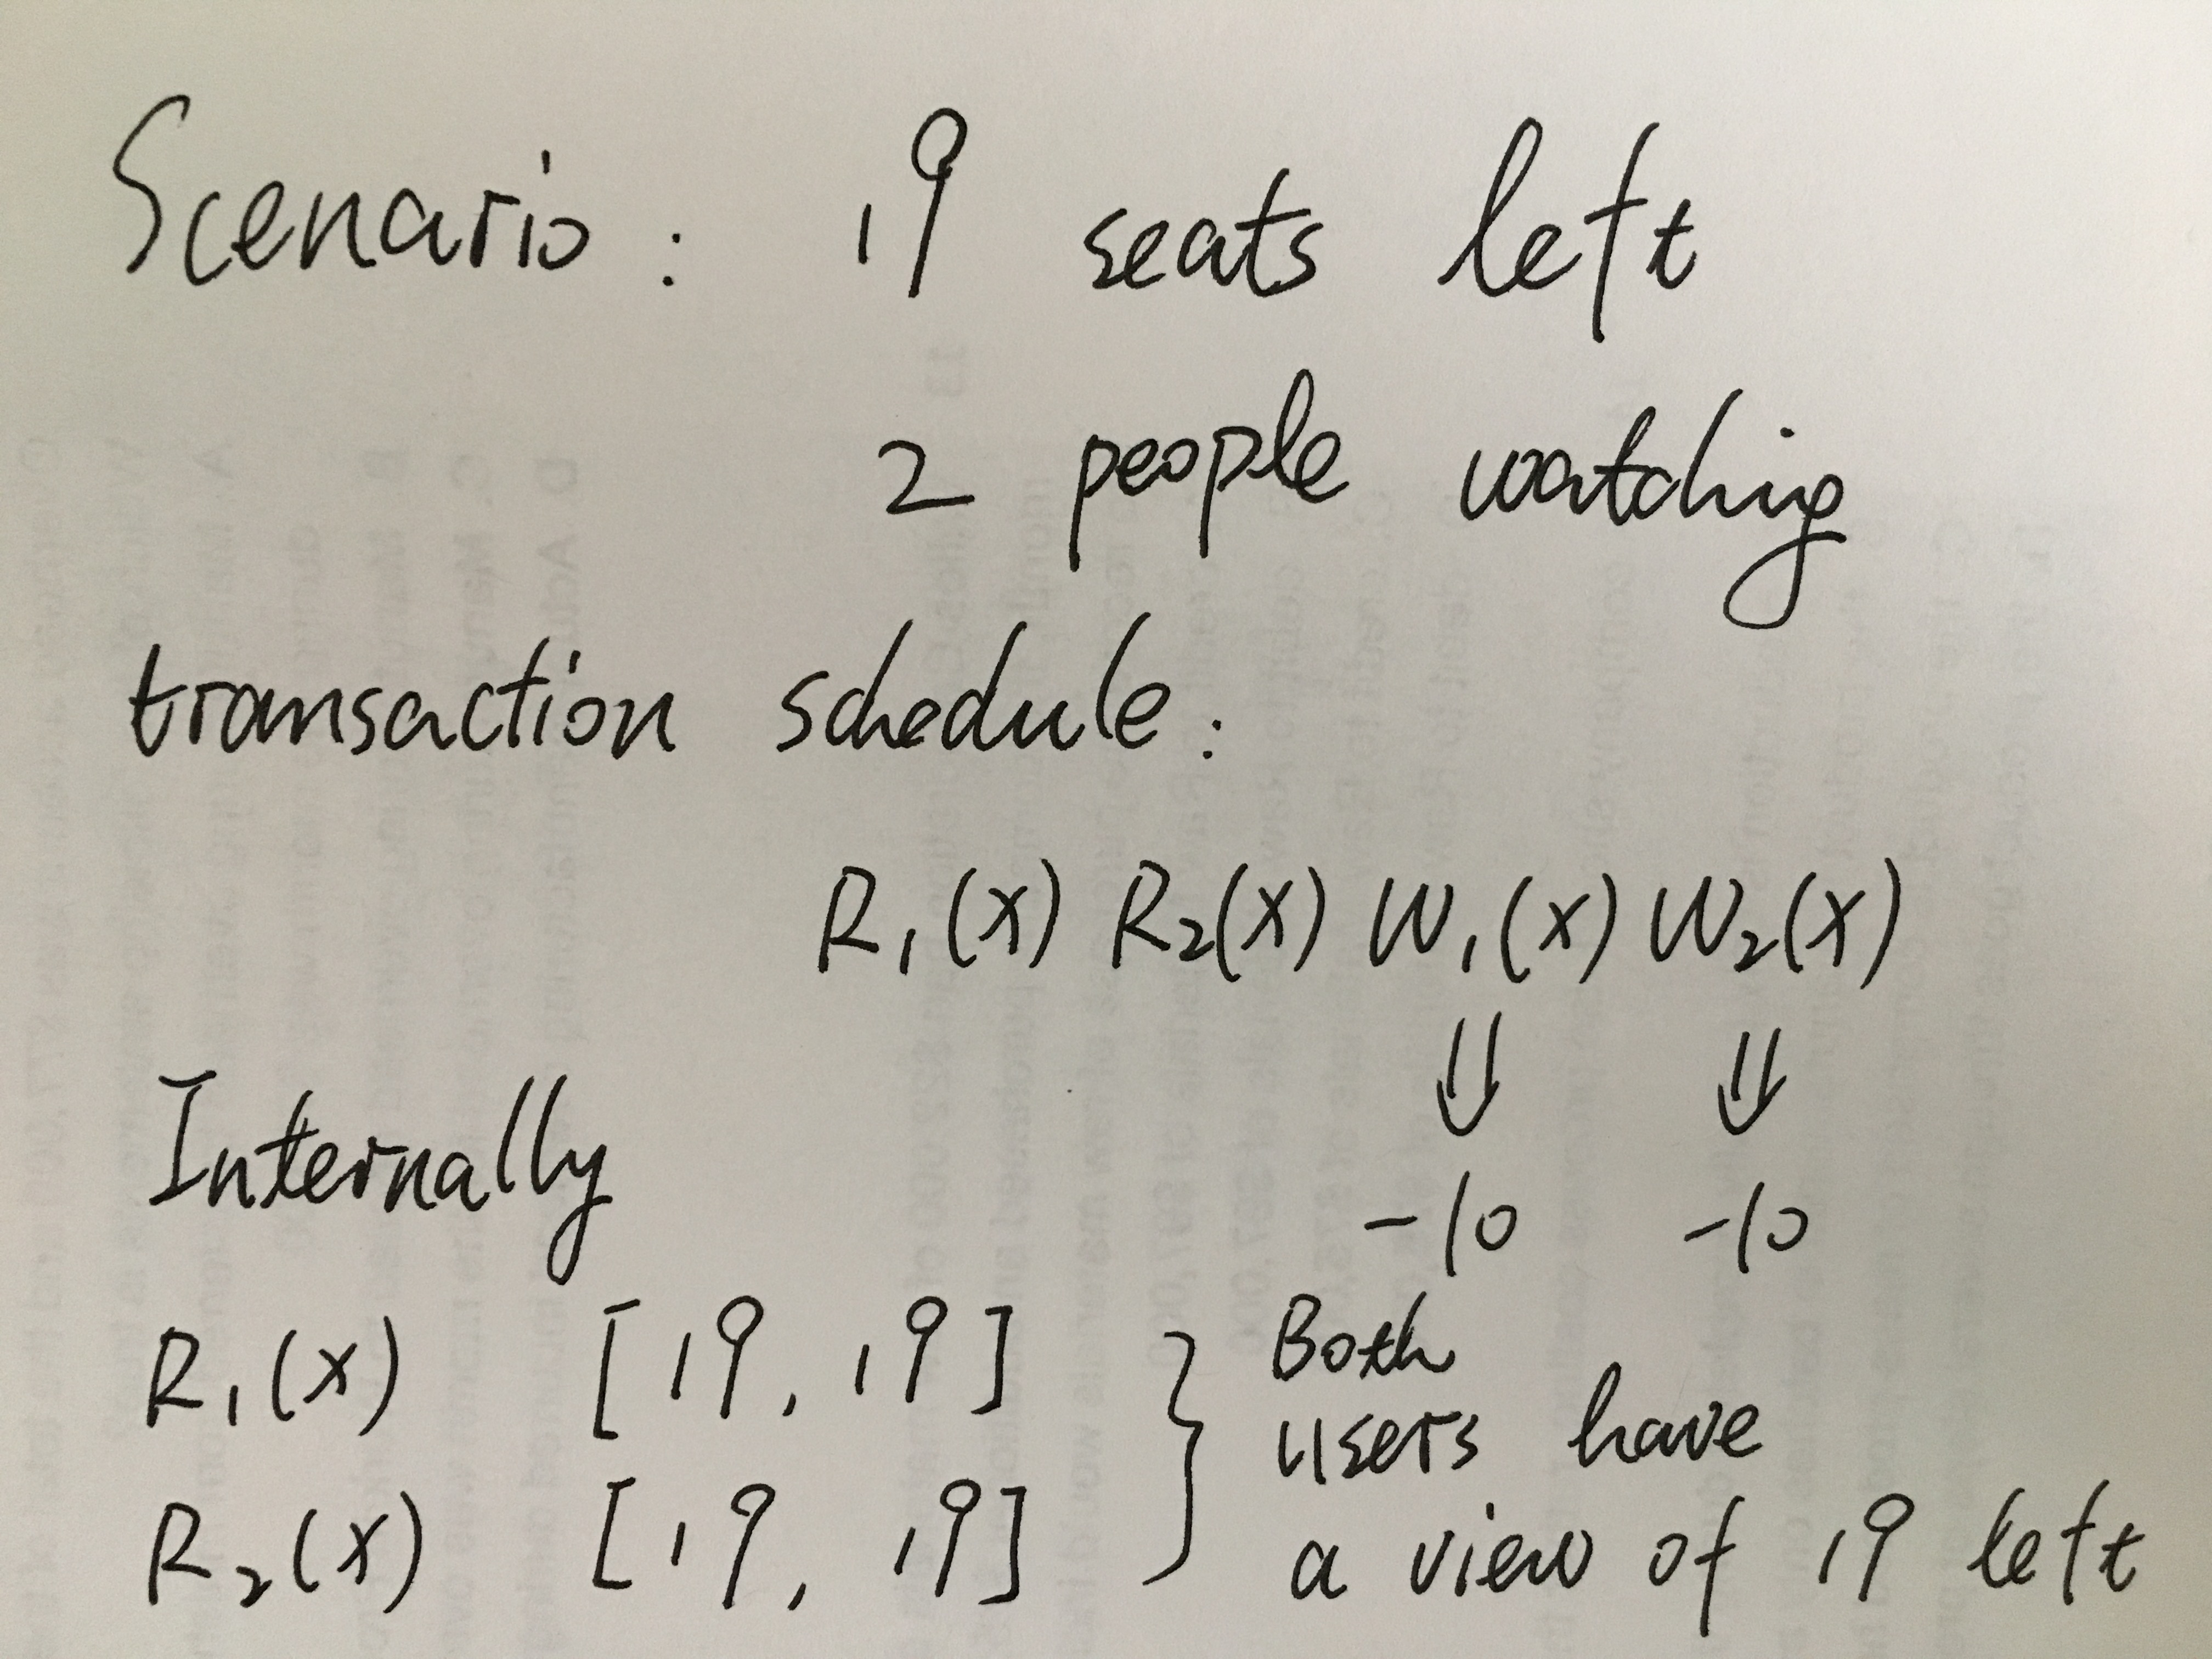 Scenario: 19 seats left
2 people watching
transaction schedule:
R₁(x) R₂(x) W₁(x) W₂(x)
⇓ ⇓
Internally -10 -10
R₁(x) [19, 19] } Both
users have
R₂(x) [19, 19] a view of 19 left